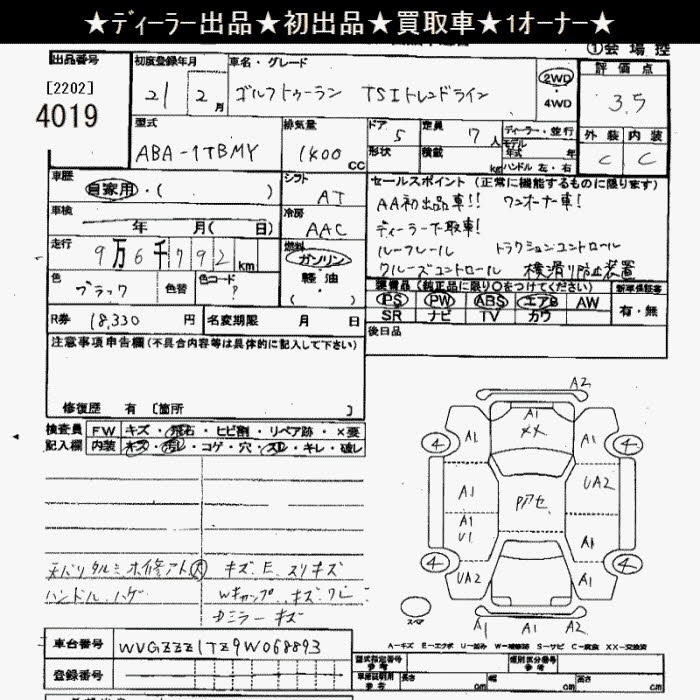 ★ディーラー出品★初出品★買取車★1オーナー★
①会場控
出品番号
[2202]
4019
初度登録年月
21 2月
車名・グレード
ゴルフトゥーラン TSIトレンドライン
2WD
・
4WD
評価点
3.5
外装 内装
C C
型式
ABA-1TBMY
排気量
1400 CC
ドア 5
形状
定員 7人
積載 kg
ディーラー・並行
モデル年式 年
ハンドル 左・右
車歴
自家用・( )
シフト
AT
車検
年 月( 日)
冷房
AAC
走行
9万6千792 km
燃料
ガソリン
軽油
( )
色
ブラック
色替
色コード
?
セールスポイント (正常に機能するものに限ります)
AA初出品車!! ワンオーナー車!
ディーラー下取車!
ルーフレール トラクションコントロール
クルーズコントロール 横滑り防止装置
装備品 (純正品に限り○をつけてください)
PS PW ABS エアB AW
SR ナビ TV カワ
新車保証書
有・無
R券 18,330 円
名変期限 月 日
後日品
注意事項申告欄 (不具合内容等は具体的に記入して下さい)
修復歴 有 [箇所 ]
検査員 FW キズ・飛石・ヒビ割・リペア跡・×要
記入欄 内装 キズ・汚レ・コゲ・穴・スレ・キレ・破レ
天バリタルミ ホ修アト大 キズ、E、スリキズ
ハンドル ハゲ Wキャップ キズ ワレ
ドミラー キズ
A2
A1
XX
A1 A1
4 4
A1 UA2
Pガセ
A1
U1 A1
4 4
UA2 A1
スペア
A1 A1 A2
A-キズ E-エクボ U-凹み W-補修跡 S-サビ C-腐蝕 XX-交換済
車台番号 WVGZZZ1TZ9W068893
登録番号
型式指定番号
参考
類別区分番号
参考
車検証記載
参考
長さ cm
幅 cm
高さ cm